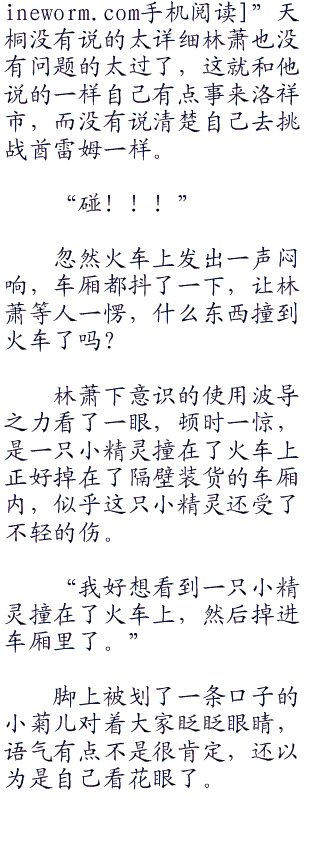 ineworm.com手机阅读]”天
桐没有说的太详细林萧也没
有问题的太过了，这就和他
说的一样自己有点事来洛祥
市，而没有说清楚自己去挑
战酋雷姆一样。
“碰！！！”
忽然火车上发出一声闷
响，车厢都抖了一下，让林
萧等人一愣，什么东西撞到
火车了吗？
林萧下意识的使用波导
之力看了一眼，顿时一惊，
是一只小精灵撞在了火车上
正好掉在了隔壁装货的车厢
内，似乎这只小精灵还受了
不轻的伤。
“我好想看到一只小精
灵撞在了火车上，然后掉进
车厢里了。”
脚上被划了一条口子的
小菊儿对着大家眨眨眼睛，
语气有点不是很肯定，还以
为是自己看花眼了。